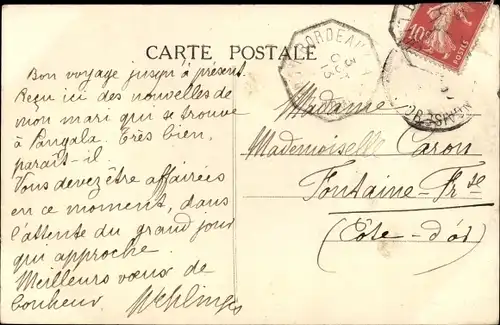 CARTE POSTALE
BORDEAUX
10c
POSTES
Bon voyage jusqu'à présent.
Reçu ici des nouvelles de
mon mari qui se trouve
à Pangala. Très bien,
paraît-il.
Vous devez être affairées
en ce moment, dans
l'attente du grand jour
qui approche.
Meilleurs vœux de
bonheur
Madame
Mademoiselle Caron
Fontaine-Frse
(Côte-d'Or)